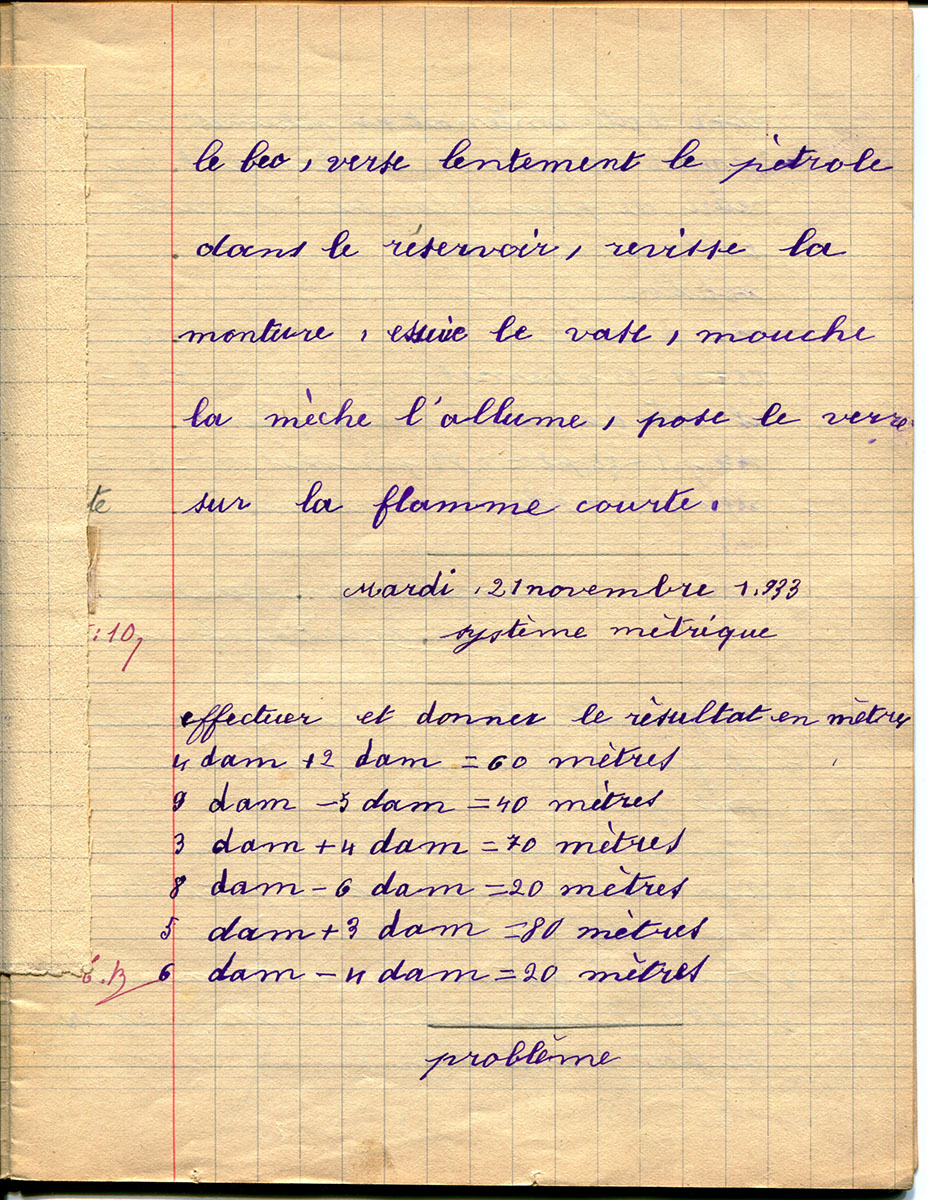 le bec, verse lentement le pètrole
dans le réservoir, revisse la
monture, essuie le vase, mouche
la mèche l'allume, pose le verre
te sur la flamme courte.
Mardi 21 novembre 1.933
:10,
système mètrique
effectuer et donner le rèsultat en mètres
4 dam + 2 dam = 60 mètres
9 dam - 5 dam = 40 mètres
3 dam + 4 dam = 70 mètres
8 dam - 6 dam = 20 mètres
5 dam + 3 dam = 80 mètres
6 dam - 4 dam = 20 mètres
problème